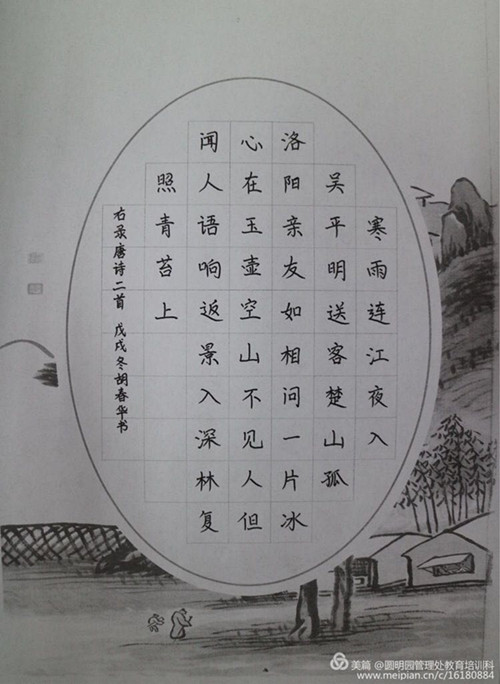 寒雨连江夜入
吴平明送客楚山孤
洛阳亲友如相问一片冰
心在玉壶空山不见人但
闻人语响返景入深林复
照青苔上
右录唐诗二首 戊戌冬胡春华书
美篇 @圆明园管理处教育培训科
www.meipian.cn/c/16180884